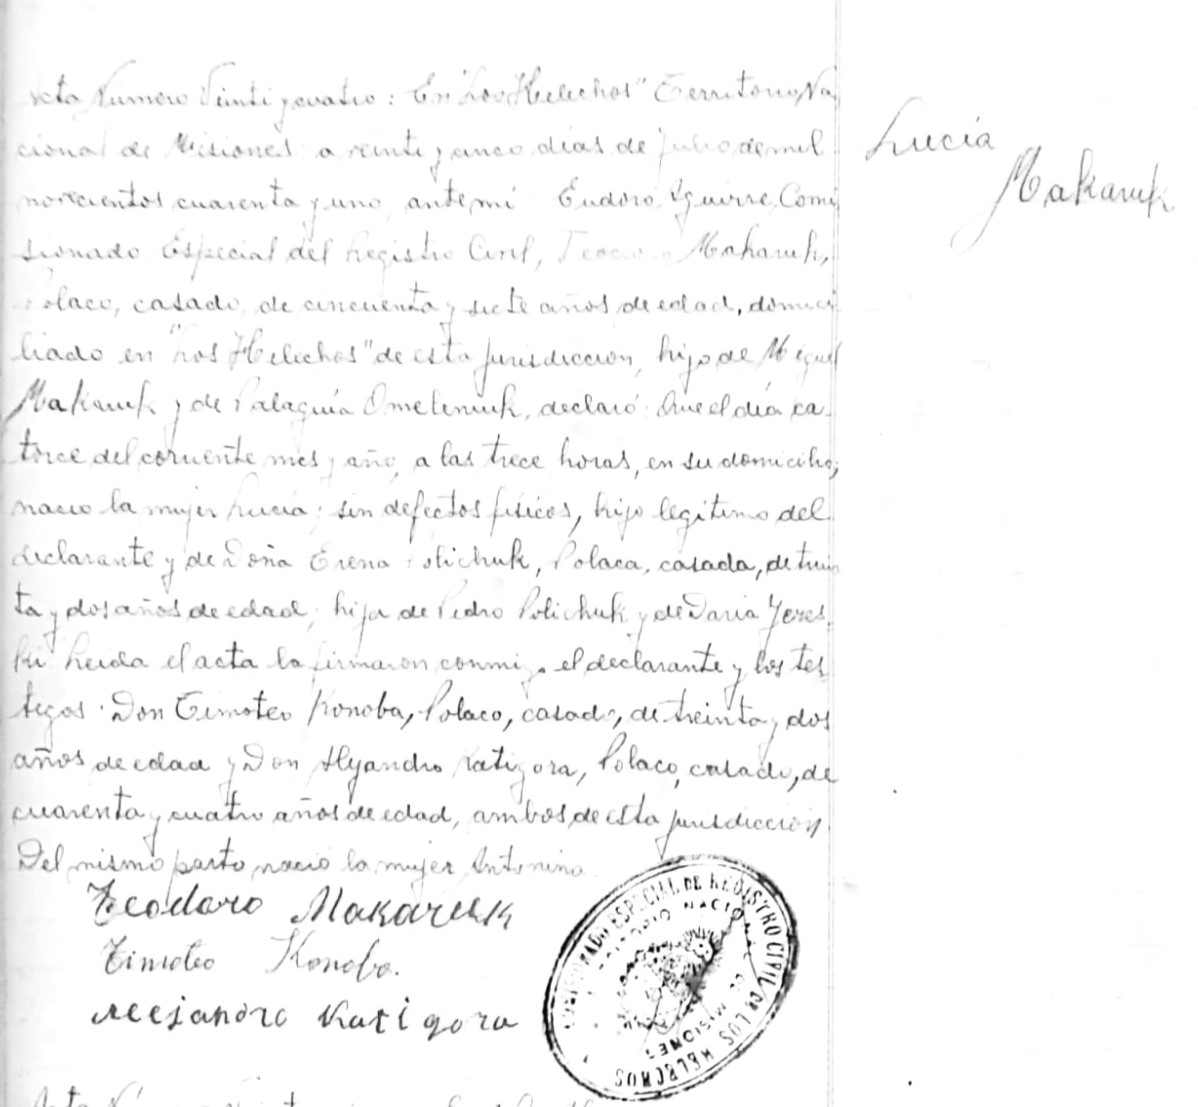 Acta Número Veinti y cuatro: En "Los Helechos" Territorio Na
cional de Misiones a veinti y cinco días de Julio de mil
novecientos cuarenta y uno, ante mí Eudoro Aguirre, Comi
sionado Especial del Registro Civil, Teodoro Makaruk,
Polaco, casado, de cincuenta y siete años de edad, domici
liado en "Los Helechos" de esta jurisdicción, hijo de Miguel
Makaruk y de Palaguía Omeleniuk, declaró: Que el día ca
torce del corriente mes y año, a las trece horas, en su domicilio,
nació la mujer Lucía; sin defectos físicos, hijo legítimo del
declarante y de Doña Erena Polichuk, Polaca, casada, de trein
ta y dos años de edad; hija de Pedro Polichuk y de Daria Jeres
ki Leída el acta la firmaron conmigo el declarante y los tes
tigos. Don Timoteo Konoba, Polaco, casado, de treinta y dos
años de edad y Don Alejandro Katigora, Polaco, casado, de
cuarenta y cuatro años de edad, ambos de esta jurisdicción.
Del mismo parto nació la mujer Antonina
Teodoro Makaruk
Timoteo Konoba.
Alejandro Katigora
Lucía
Makaruk
COMISIONADO ESPECIAL DE REGISTRO CIVIL DE LOS HELECHOS
TERRITORIO NACIONAL DE MISIONES